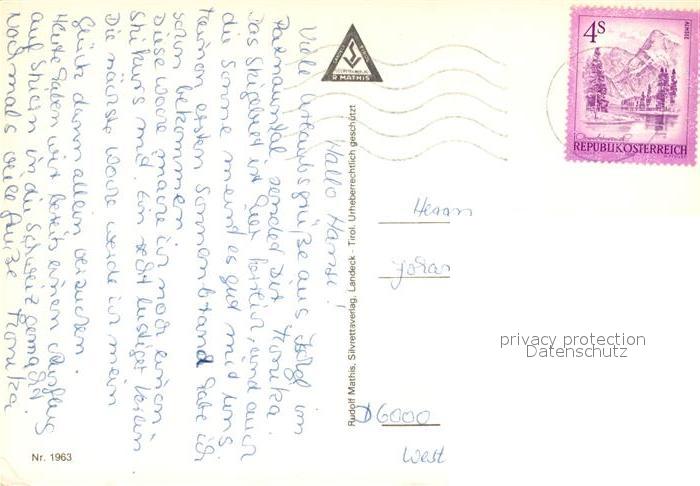 Hallo Hansi!
Viele Urlaubsgrüße aus Ischgl im
Paznauntal sendet dir Monika.
Das Skigebiet ist hier herrlich, und auch
die Sonne meint es gut mit uns
Meinen ersten Sonnenbrand habe ich
schon bekommen
Diese Woche mache ich noch einen
Skikurs mit. Ein sehr lustiger Verein.
Die nächste Woche werde ich mein
Glück dann allein versuchen.
Heute haben wir bereits einen Ausflug
auf Skiern in die Schweiz gemacht
Nochmals viele Grüße Monika
Nr. 1963
R. MATHIS
Rudolf Mathis, Silvrettaverlag, Landeck - Tirol. Urheberrechtlich geschützt
4S
ALMSEE
REPUBLIK ÖSTERREICH
Herrn
D6000
West
privacy protection
Datenschutz